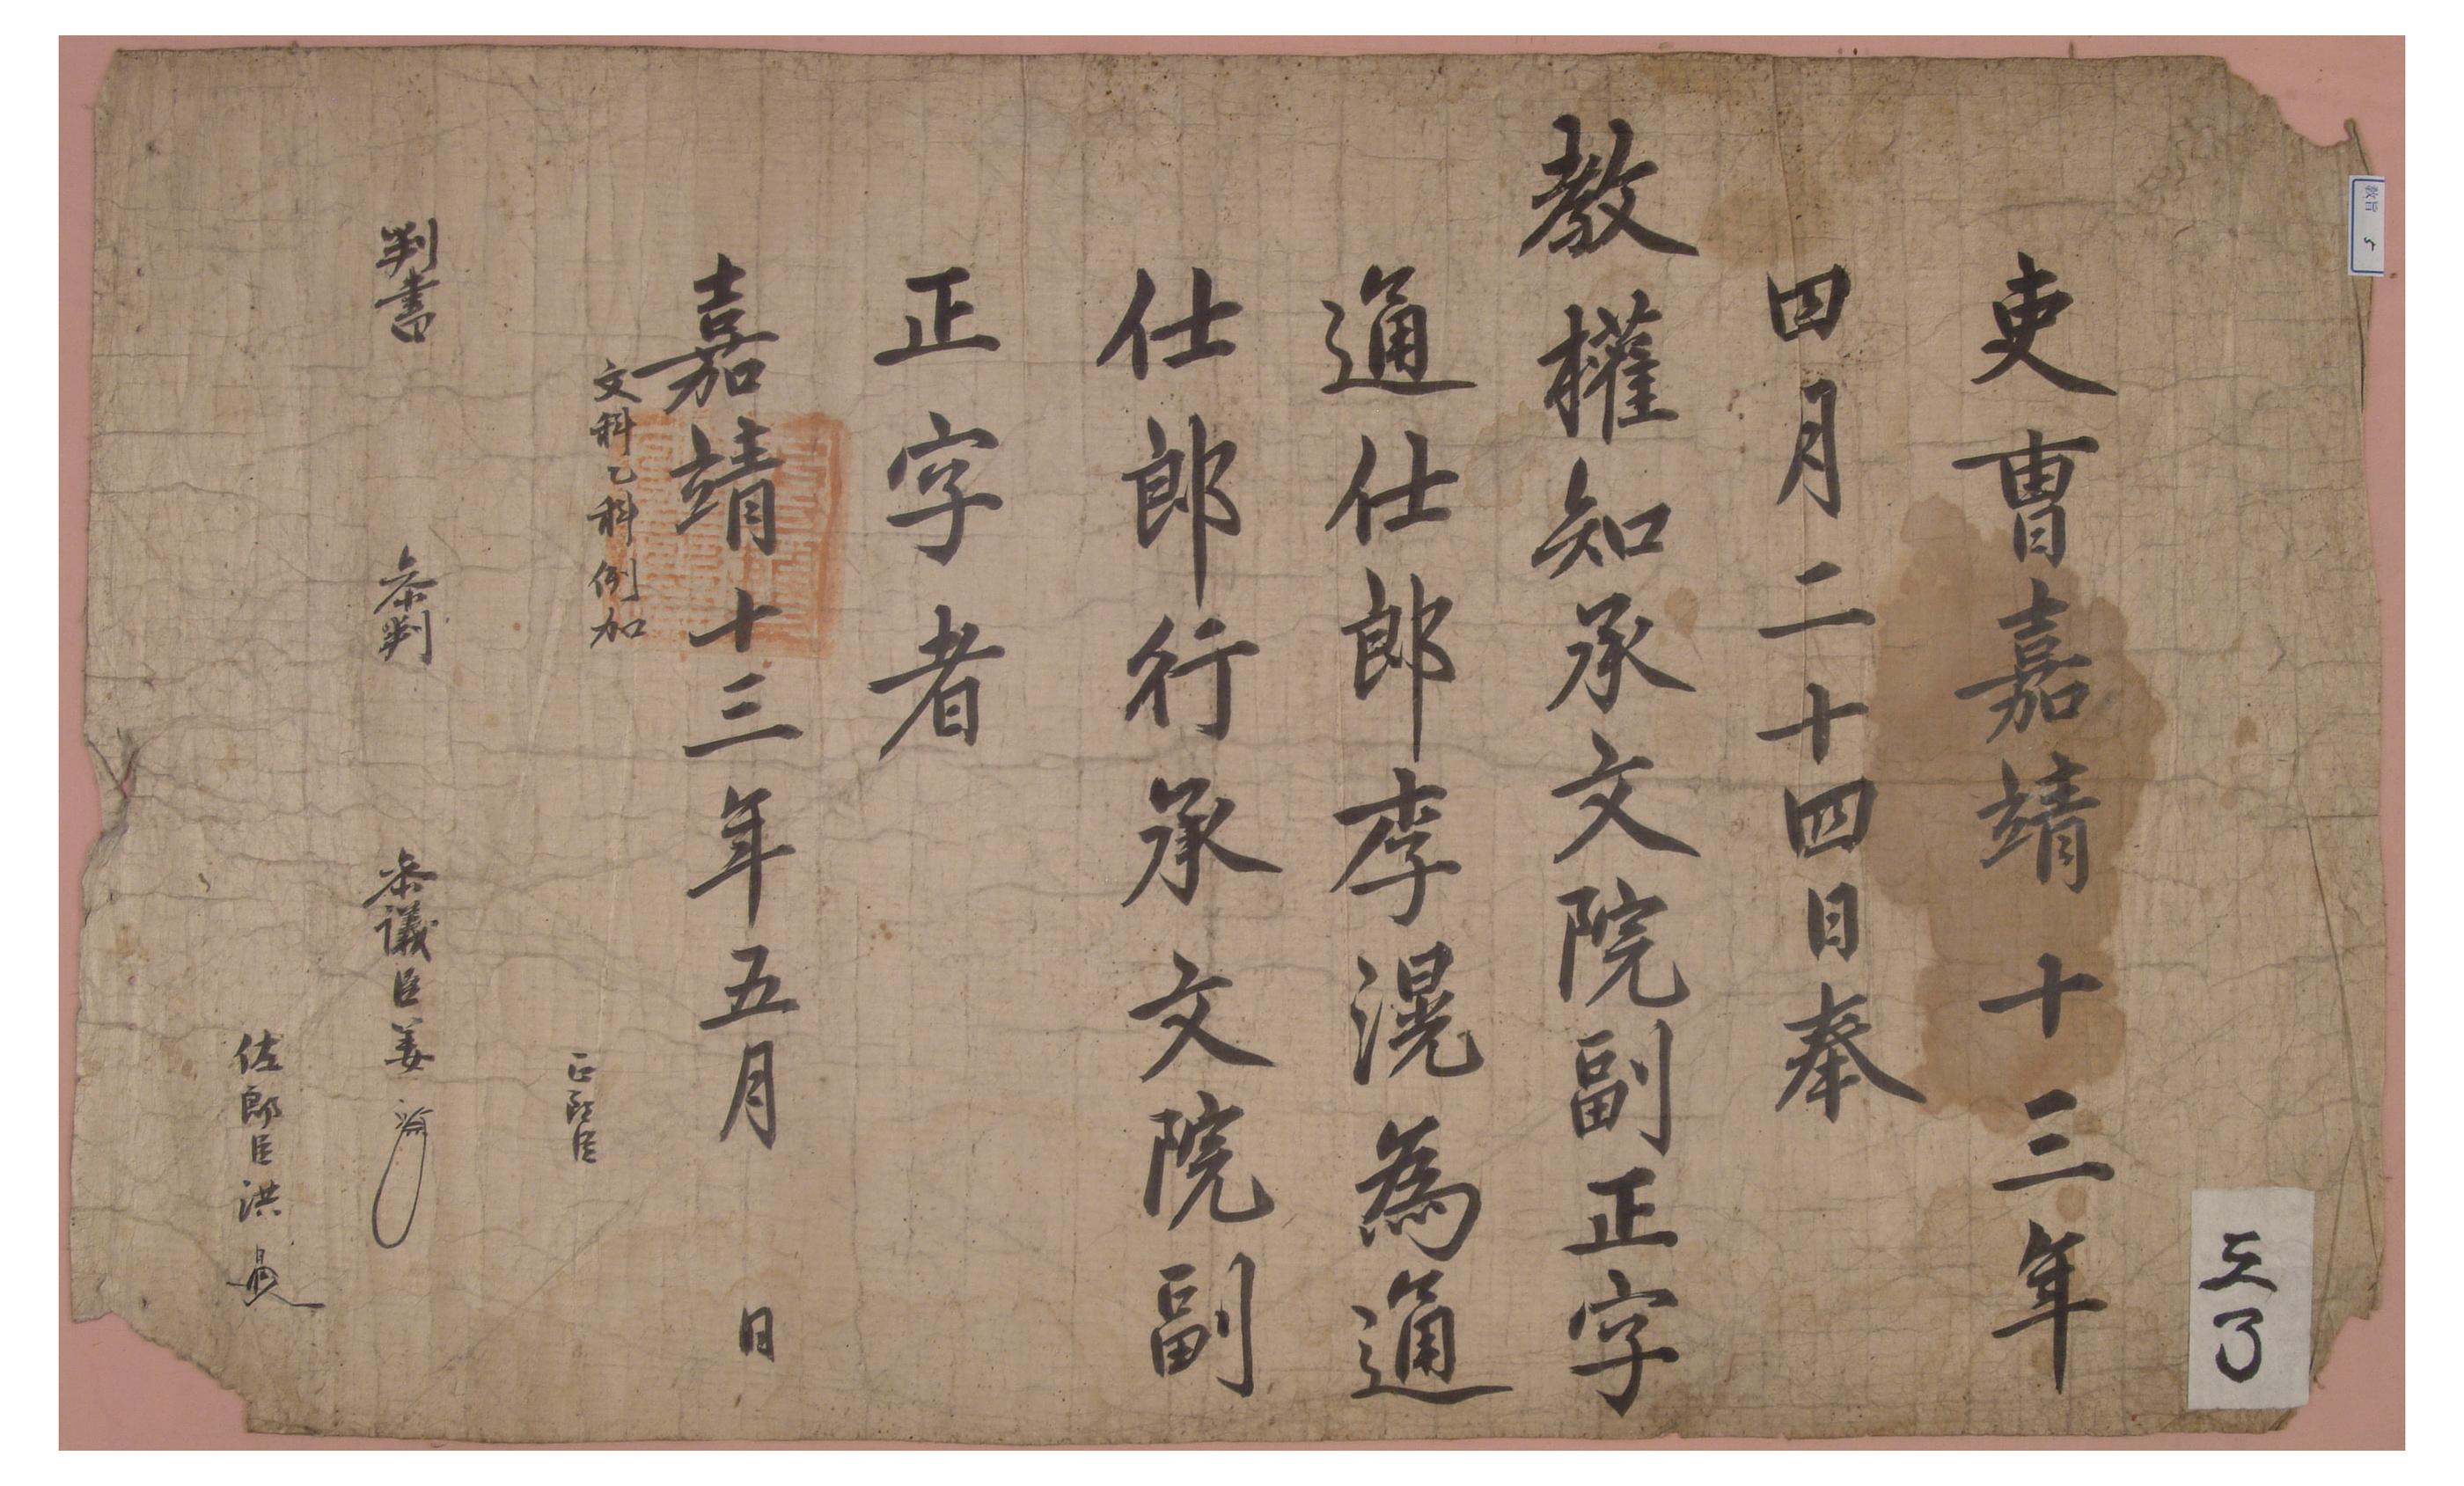 吏曹嘉靖十三年
四月二十四日奉
教權知承文院副正字
通仕郎李滉為通
仕郎行承文院副
正字者
嘉靖十三年五月 日
文科乙科例加
正郎臣
判書 参判 参議臣姜
佐郎臣洪
教旨 5